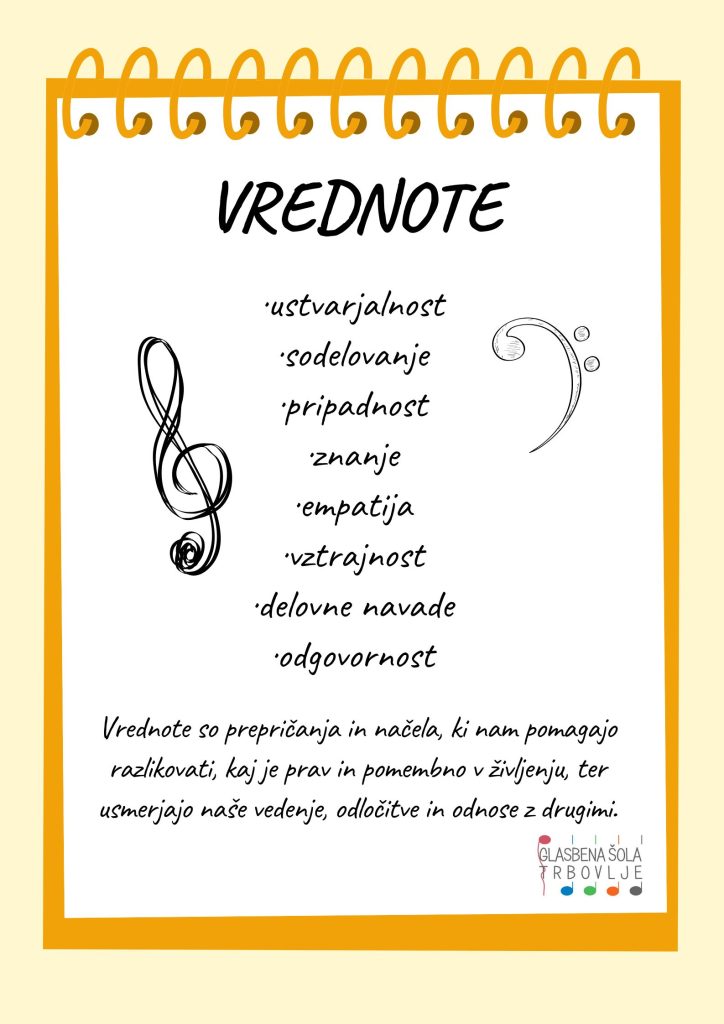 VREDNOTE
·ustvarjalnost
·sodelovanje
·pripadnost
·znanje
·empatija
·vztrajnost
·delovne navade
·odgovornost
Vrednote so prepričanja in načela, ki nam pomagajo
razlikovati, kaj je prav in pomembno v življenju, ter
usmerjajo naše vedenje, odločitve in odnose z drugimi.
GLASBENA ŠOLA
TRBOVLJE